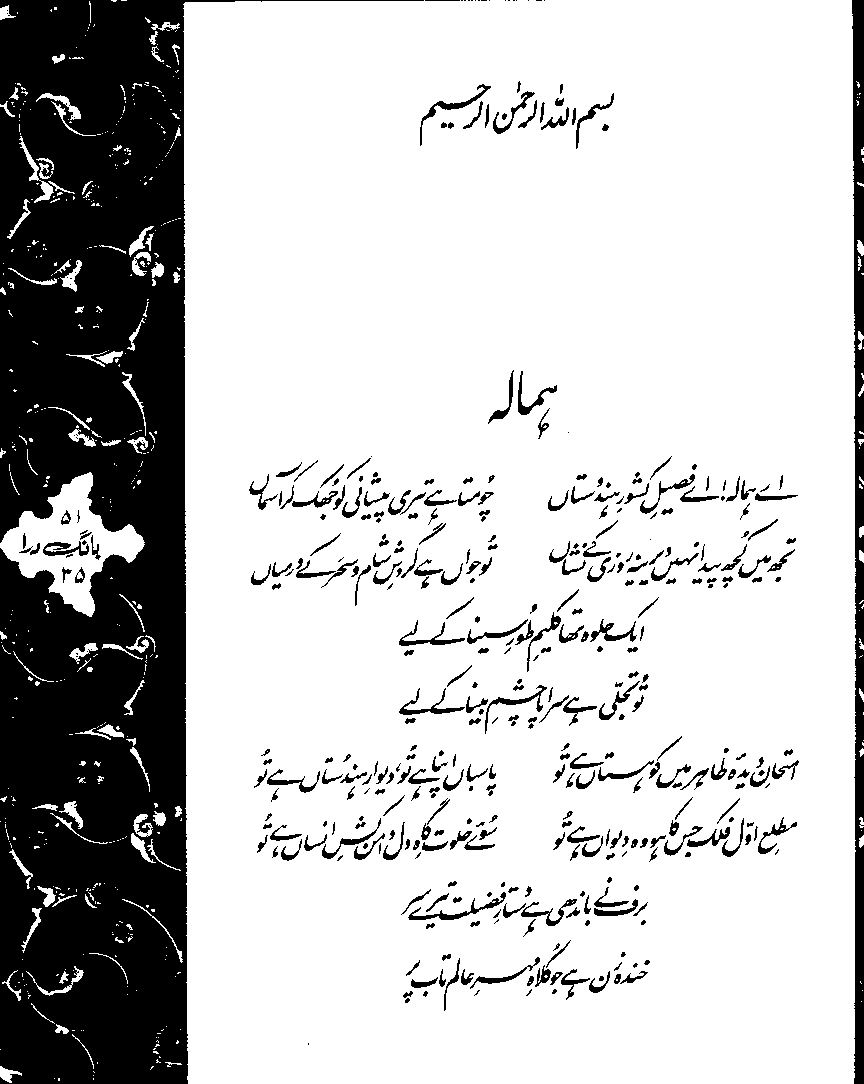 بسم اللہ الرحمٰن الرحیم
ہمالہ
اے ہمالہ! اے فصیلِ کشورِ ہندُستاں چُومتا ہے تیری پیشانی کو جُھک کر آسماں
تجھ میں کُچھ پیدا نہیں دیرینہ روزی کے نشاں تُو جواں ہے گردشِ شام و سحَر کے درمیاں
ایک جلوہ تھا کلیمِ طُورِ سینا کے لیے
تُو تجلّی ہے سراپا چشمِ بینا کے لیے
امتحانِ دیدۂ ظاہر میں کوہستاں ہے تُو پاسباں اپنا ہے تُو، دیوارِ ہندُستاں ہے تُو
مطلعِ اوّل فلک جس کا ہو وہ دِیواں ہے تُو سُوئے خلوت گاہِ دل دامن کشِ انساں ہے تُو
برف نے باندھی ہے دستارِ فضیلت تیرے سر
خندہ زن ہے جو کُلاہِ مہرِ عالم تاب پر
۵۱
بانگِ درا
۳۵